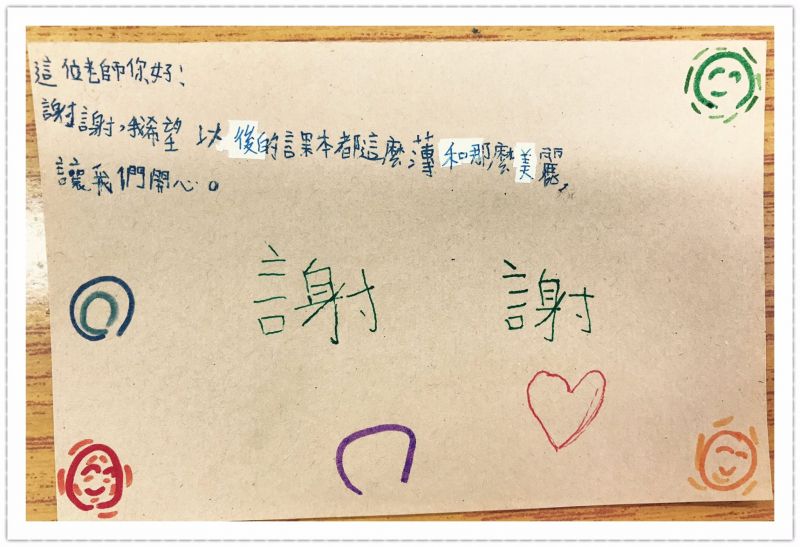 這位老師你好!
謝謝,我希望以後的課本都這麼薄和那麼美麗,
讓我們開心。
謝 謝